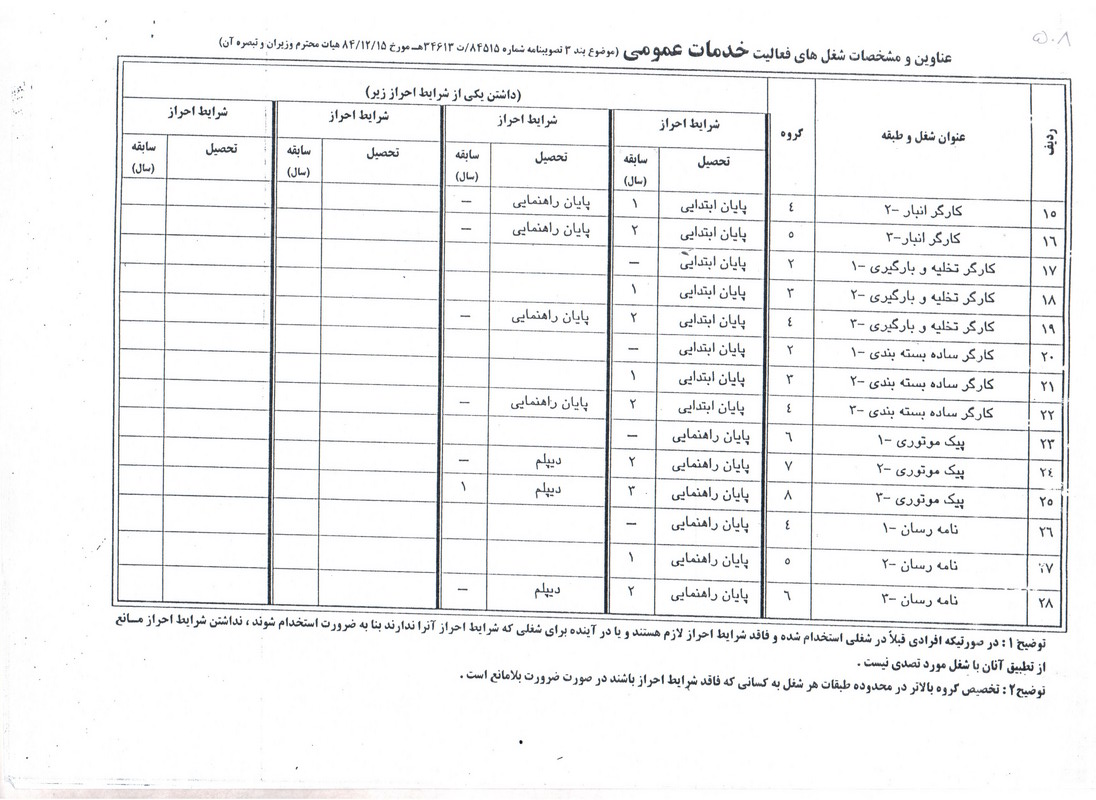 ۵۰۸
عناوین و مشخصات شغل های فعالیت خدمات عمومی (موضوع بند ۳ تصویبنامه شماره ۸۴۵۱۵/ت ۳۴۶۱۳هـ مورخ ۸۴/۱۲/۱۵ هیات محترم وزیران و تبصره آن)
ردیف عنوان شغل و طبقه گروه (داشتن یکی از شرایط احراز زیر)
شرایط احراز شرایط احراز شرایط احراز شرایط احراز
تحصیل سابقه (سال) تحصیل سابقه (سال) تحصیل سابقه (سال) تحصیل سابقه (سال)
۱۵ کارگر انبار -۲ ٤ پایان ابتدایی ۱ پایان راهنمایی —
۱٦ کارگر انبار-۳ ٥ پایان ابتدایی ۲ پایان راهنمایی —
۱۷ کارگر تخلیه و بارگیری -۱ ۲ پایان ابتدایی —
۱۸ کارگر تخلیه و بارگیری -۲ ۳ پایان ابتدایی ۱
۱۹ کارگر تخلیه و بارگیری -۳ ٤ پایان ابتدایی ۲ پایان راهنمایی —
۲۰ کارگر ساده بسته بندی -۱ ۲ پایان ابتدایی —
۲۱ کارگر ساده بسته بندی -۲ ۳ پایان ابتدایی ۱
۲۲ کارگر ساده بسته بندی -۳ ٤ پایان ابتدایی ۲ پایان راهنمایی —
۲۳ پیک موتوری -۱ ٦ پایان راهنمایی —
۲٤ پیک موتوری -۲ ۷ پایان راهنمایی ۲ دیپلم —
۲٥ پیک موتوری -۳ ۸ پایان راهنمایی ۳ دیپلم ۱
۲٦ نامه رسان -۱ ٤ پایان راهنمایی —
۲۷ نامه رسان -۲ ٥ پایان راهنمایی ۱
۲۸ نامه رسان -۳ ٦ پایان راهنمایی ۲ دیپلم —
توضیح ۱ : در صورتیکه افرادی قبلاً در شغلی استخدام شده و فاقد شرایط احراز لازم هستند و یا در آینده برای شغلی که شرایط احراز آنرا ندارند بنا به ضرورت استخدام شوند ، نداشتن شرایط احراز مـانع
از تطبیق آنان با شغل مورد تصدی نیست .
توضیح۲ : تخصیص گروه بالاتر در محدوده طبقات هر شغل به کسانی که فاقد شرایط احراز باشند در صورت ضرورت بلامانع است .